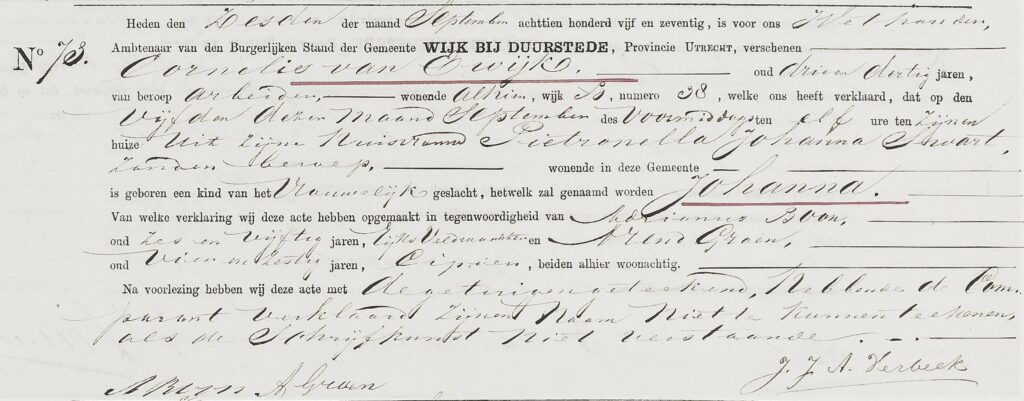 Heden den Zesden der maand September achttien honderd vijf en zeventig, is voor ons Wethouder,
No 73. Ambtenaar van den Burgerlijken Stand der Gemeente WIJK BIJ DUURSTEDE, Provincie UTRECHT, verschenen
Cornelis van Ewijk. oud drieen dertig jaren,
van beroep arbeider, wonende alhier, wijk B, numero 38, welke ons heeft verklaard, dat op den
Vijfden dezer maand September des Voormiddags ten elf ure ten zijnen
huize Uit zijne Huisvrouw Pietronella Johanna Swart,
Zonder beroep, wonende in deze Gemeente
is geboren een kind van het Vrouwelijk geslacht, hetwelk zal genaamd worden Johanna.
Van welke verklaring wij deze acte hebben opgemaakt in tegenwoordigheid van Adrianus
oud Zes en Vijftig jaren, Rijks Veldwachter en Arend Groen,
oud Vier en Zestig jaren, Cipier, beiden alhier woonachtig.
Na voorlezing hebben wij deze acte met de getuigen geteekend, Hebbende de Com-
parant verklaard zijnen Naam Niet te kunnen teekenen,
als de Schrijfkunst Niet verstaande.
A Groen J. J. A. Verbeek